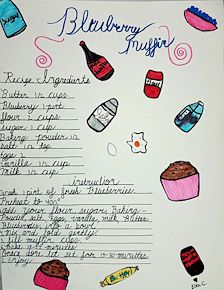 Blueberry
Muffin
Recipe Ingredients
Butter 1/2 cups
Blueberry 1 pint
flour 2 cups
sugar 1 cup
Baking powder 1/2
salt 1/2 tsp
Eggs 2
Vanilla 1/2 cup
Milk 1/2 cup
instruction
Wash 1 pint of fresh Blueberries
Preheat to 400°
add your flour, sugar, Baking
Powder, salt, Eggs, vanilla, milk, Butter
Blueberries into a bowl
mix and fold gently
fill muffin cups
Bake
once done let set for 15-30 minutes
enjoy